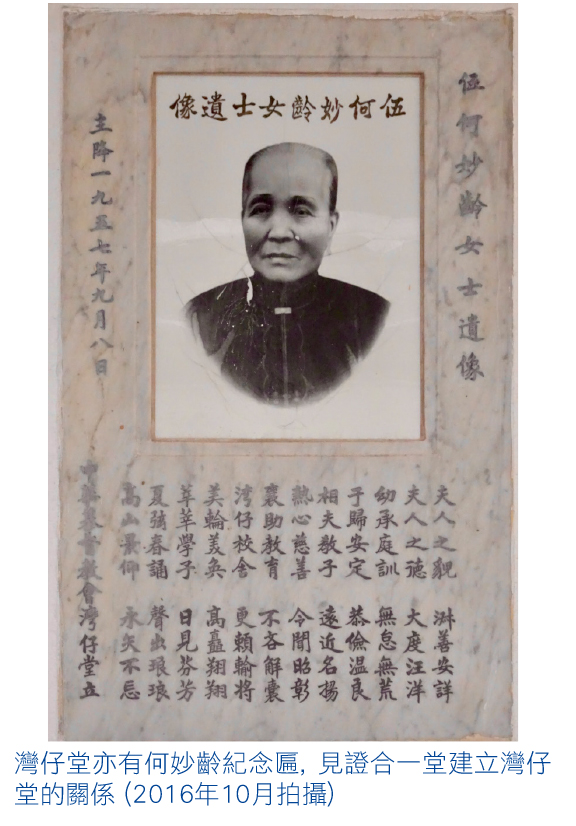 伍何妙齡女士遺像
伍何妙齡女士遺像
主降一九五七年九月八日
夫人之 淑善安詳
夫人之德 大度汪洋
幼承庭訓 無怠無荒
于歸安定 恭儉温良
相夫教子 遠近名揚
熱心慈善 令聞昭彰
襄助教育 不吝解囊
灣仔校舍 更賴輸將
美輪美奐 高矗翔翔
莘莘學子 日見芬芳
夏弦春誦 聲出琅琅
高山景仰 永矢不忘
中華基督教會灣仔堂立
灣仔堂亦有何妙齡紀念匾，見證合一堂建立灣仔
堂的關係 (2016年10月拍攝)